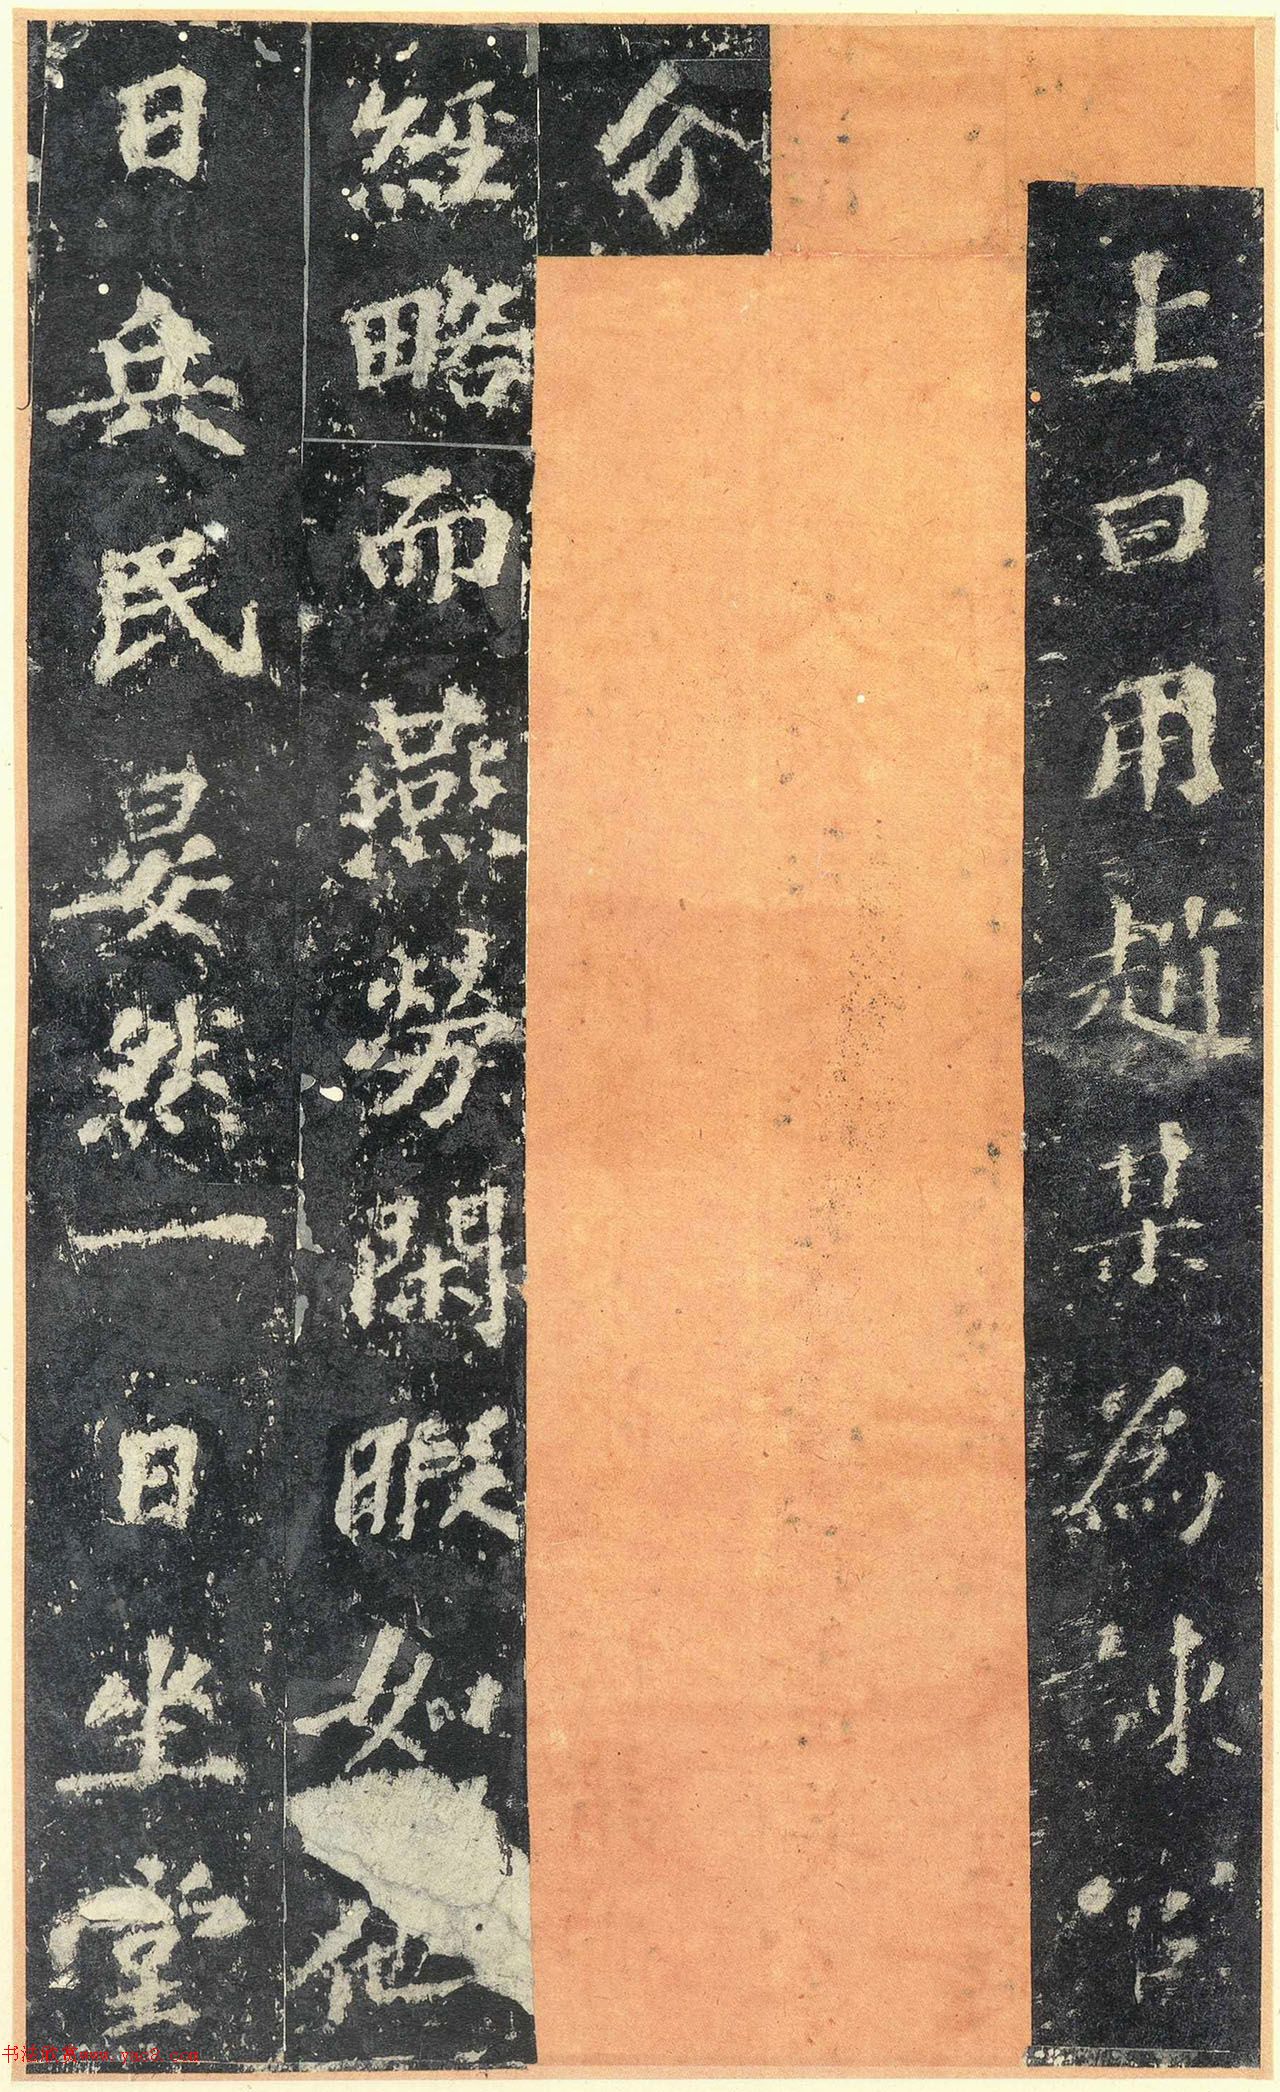 上曰用趙某為諫官
分
經略而燕勞閑暇如他
日兵民晏然一日坐堂
书法欣赏www.yac8.com